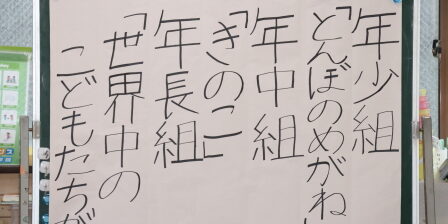 年少組
「とんぼのめがね」
年中組
「きのこ」
年長組
「世界中の
こどもたちが